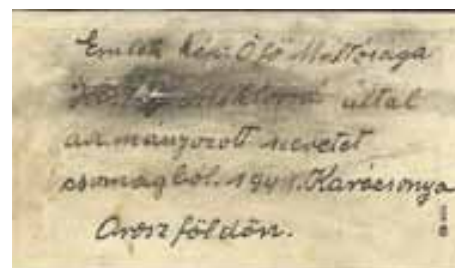 Emlék kép. Ő fő Méltósága
Horthy Miklósné által
adományozott szeretet
csomagból. 1941. Karácsonya
Orosz földön.